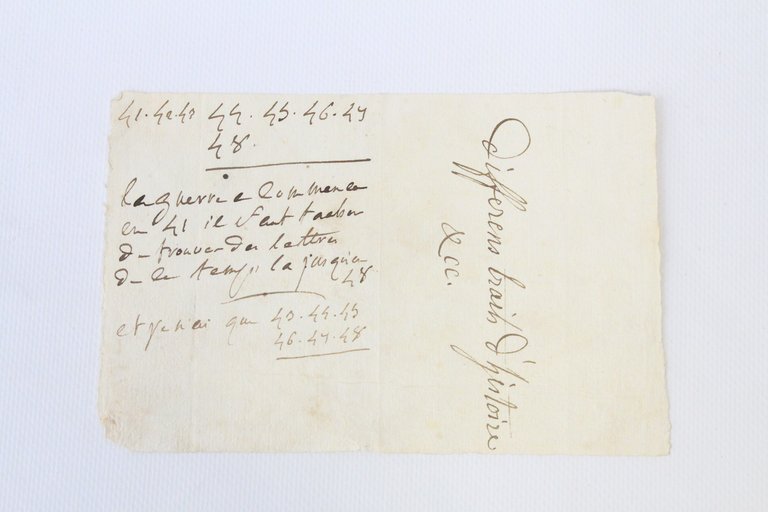 41. 42. 43 44. 45. 46. 47
48.
la guerre a commencé
en 41 il faut tacher
de trouver des lettres
de ce temps la jusqu'en
48
et je n'ai que 43. 44. 45
46. 47. 48
differens traits d'histoire
&cc.